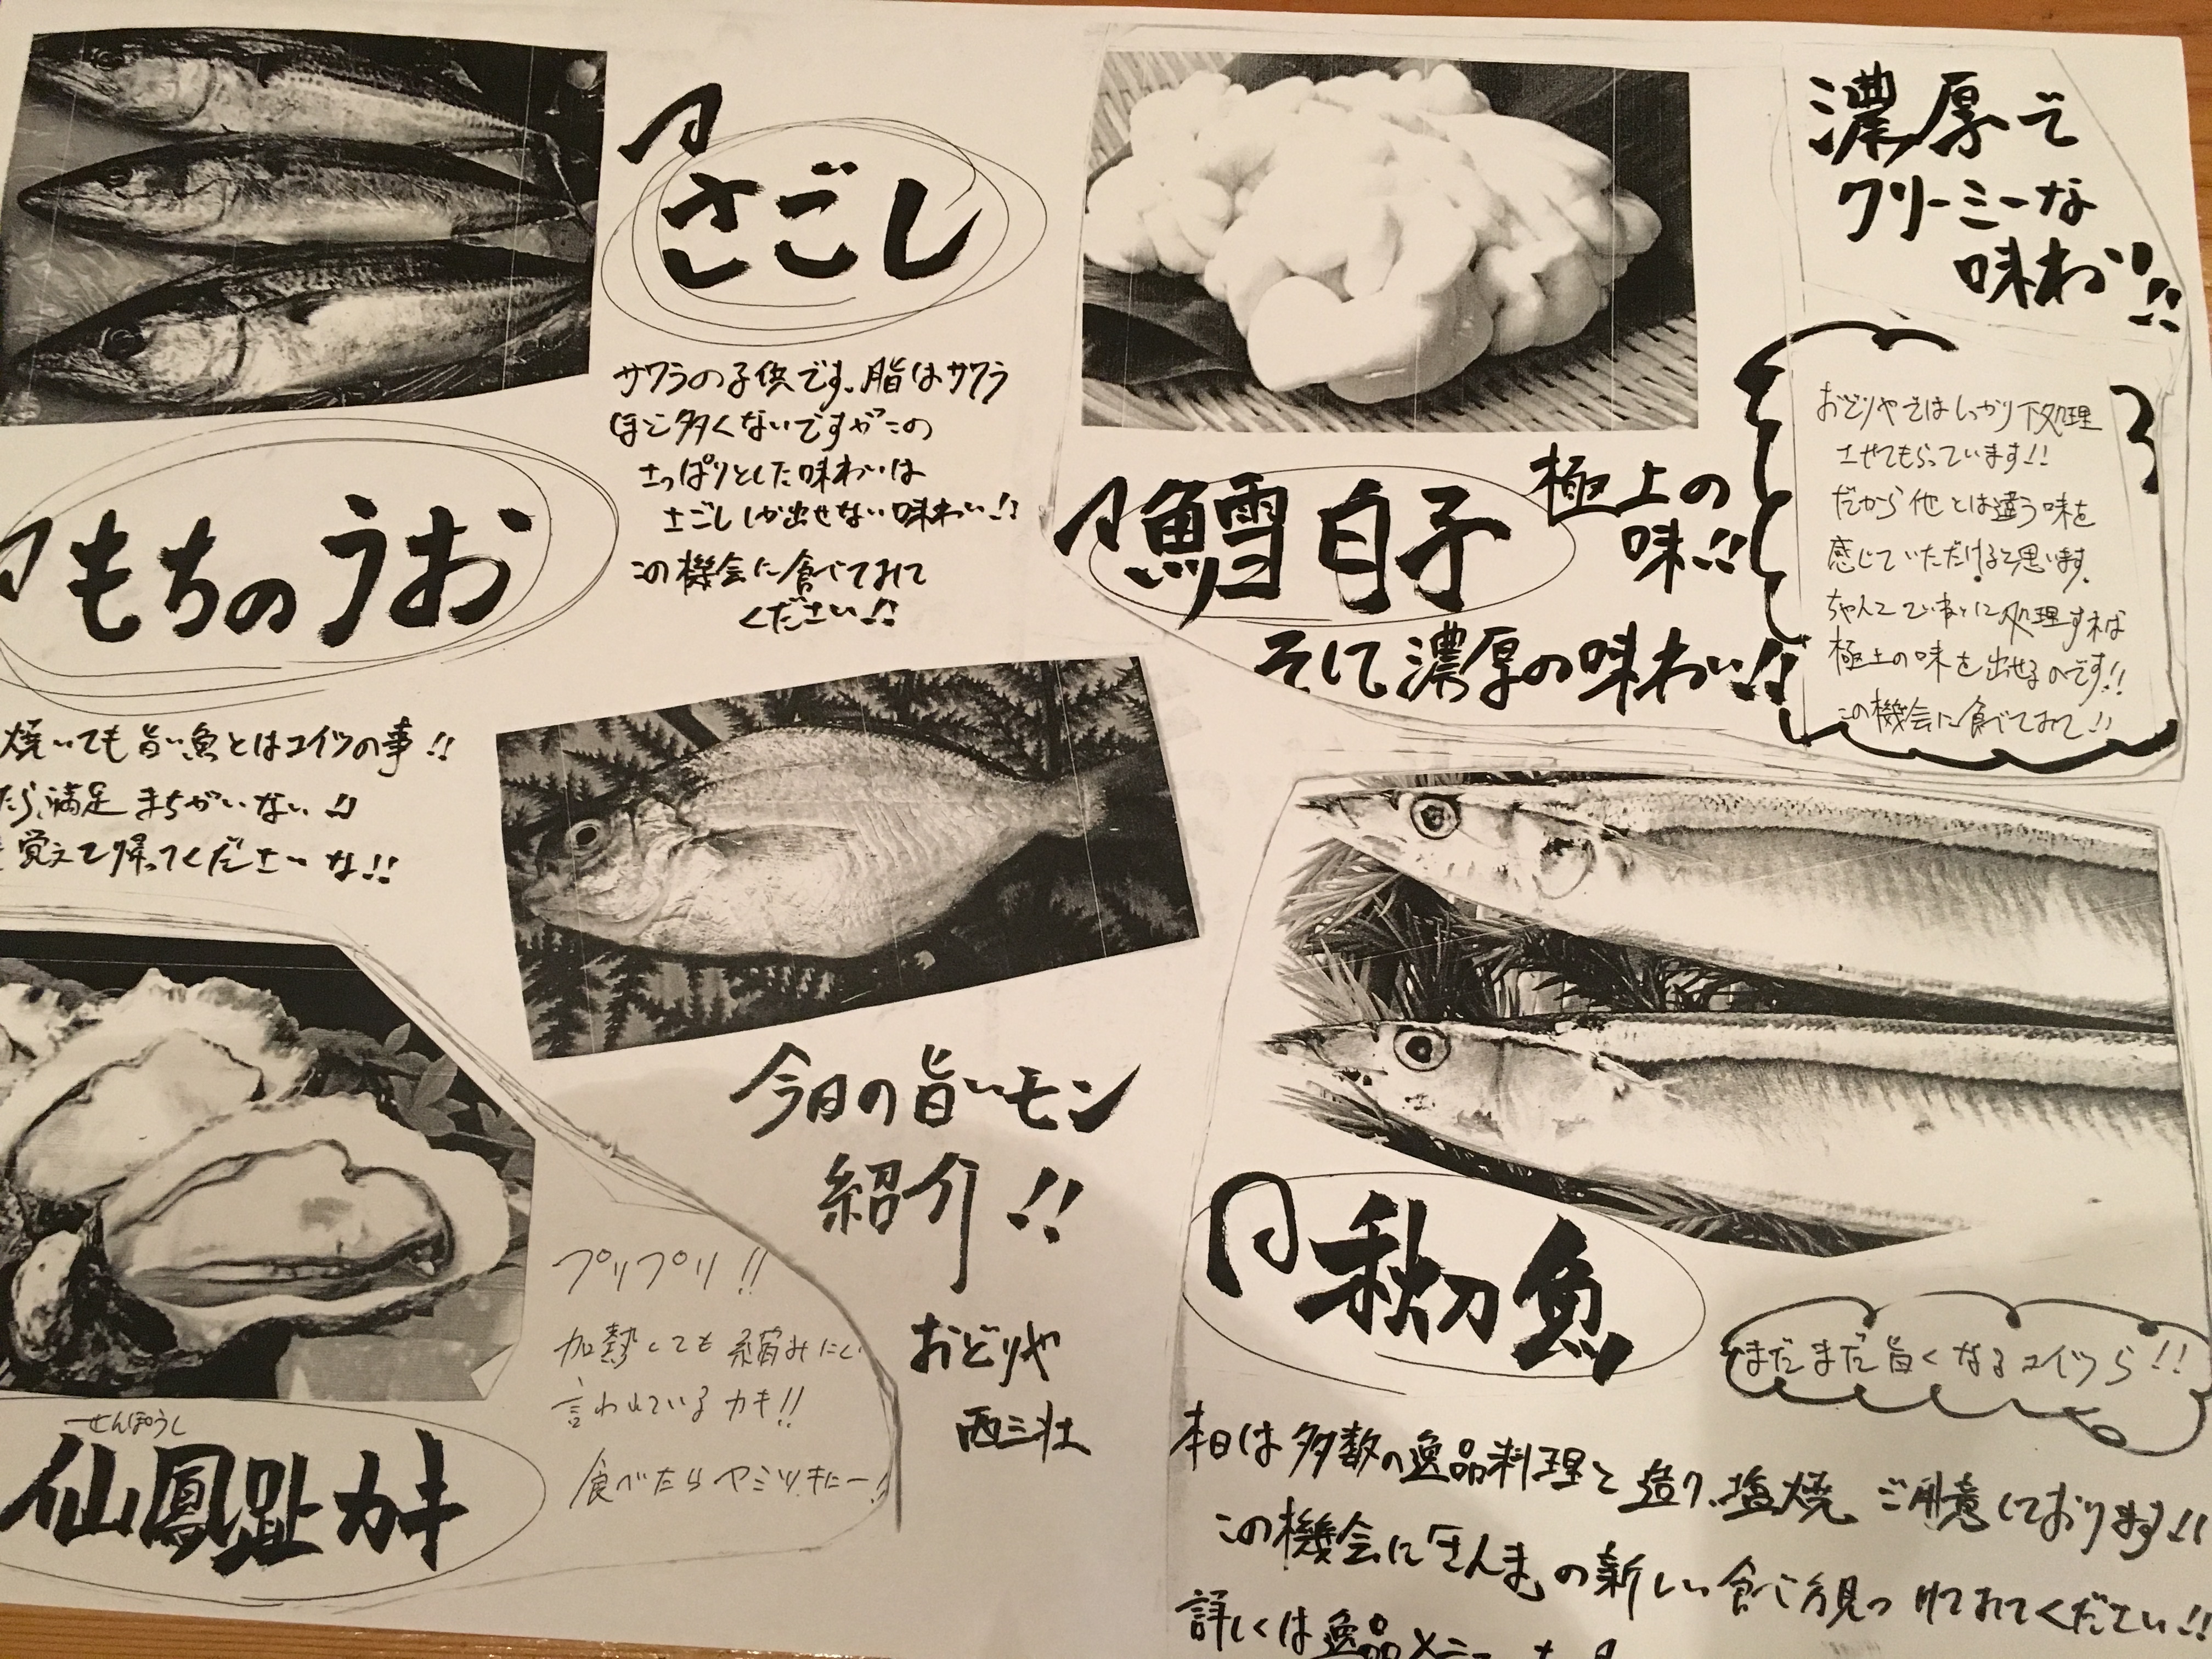 さごし
サワラの子供です。脂はサワラ
ほど多くないですがこの
さっぱりとした味わいは
さごししか出せない味わい!!
この機会に食べてみて
ください!!
もちのうお
焼いても旨い魚とはコイツの事!!
たら満足まちがいない!!
覚えて帰ってくださいな!!
濃厚で
クリーミーな
味わい!!
鱈白子
極上の
味!!
そして濃厚の味わい!!
おどりやではしっかり下処理
させてもらっています!!
だから他とは違う味を
感じていただけると思います。
ちゃんとていねいに処理すれば
極上の味を出せるのです!!
この機会に食べてみて!!
今日の旨いモン
紹介!!
おどりや
西三荘
プリプリ!!
加熱しても縮みにくい
言われているカキ!!
食べたらヤミツキにー!
せんぽうし
仙鳳趾カキ
秋刀魚
まだまだ旨くなるコイツら!!
本日は多数の逸品料理と造り、塩焼、ご用意しております!!
この機会に「さんま」の新しい食べ方見つけてみてください!!
詳しくは逸品メニュー